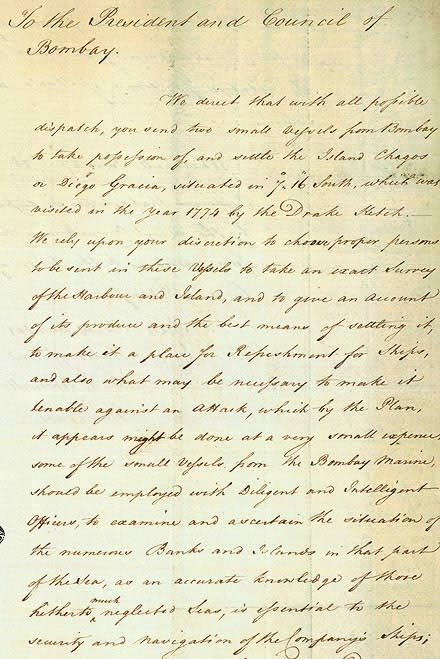 To the President and Council of
Bombay.
We direct that with all possible
dispatch, you send two small Vessels from Bombay
to take possession of, and settle the Island Chagos
or Diego Gracia, situated in 7°. 16 South, which was
visited in the year 1774 by the Drake Ketch.—
We rely upon your discretion to choose proper persons
to be sent in these Vessels to take an exact Survey
of the Harbour and Island, and to give an Account
of its produce and the best means of settling it,
to make it a place for Refreshment for Ships,
and also what may be necessary to make it
tenable against an Attack, which by the Plan,
it appears might be done at a very small expence
some of the small Vessels from the Bombay Marine
should be employed with Diligent and Intelligent
Officers, to examine and ascertain the situation of
the numerous Banks and Islands in that part
of the Sea, as an accurate knowledge of those
hetherto much neglected Seas, is essential to the
security and navigation of the Company's Ships;